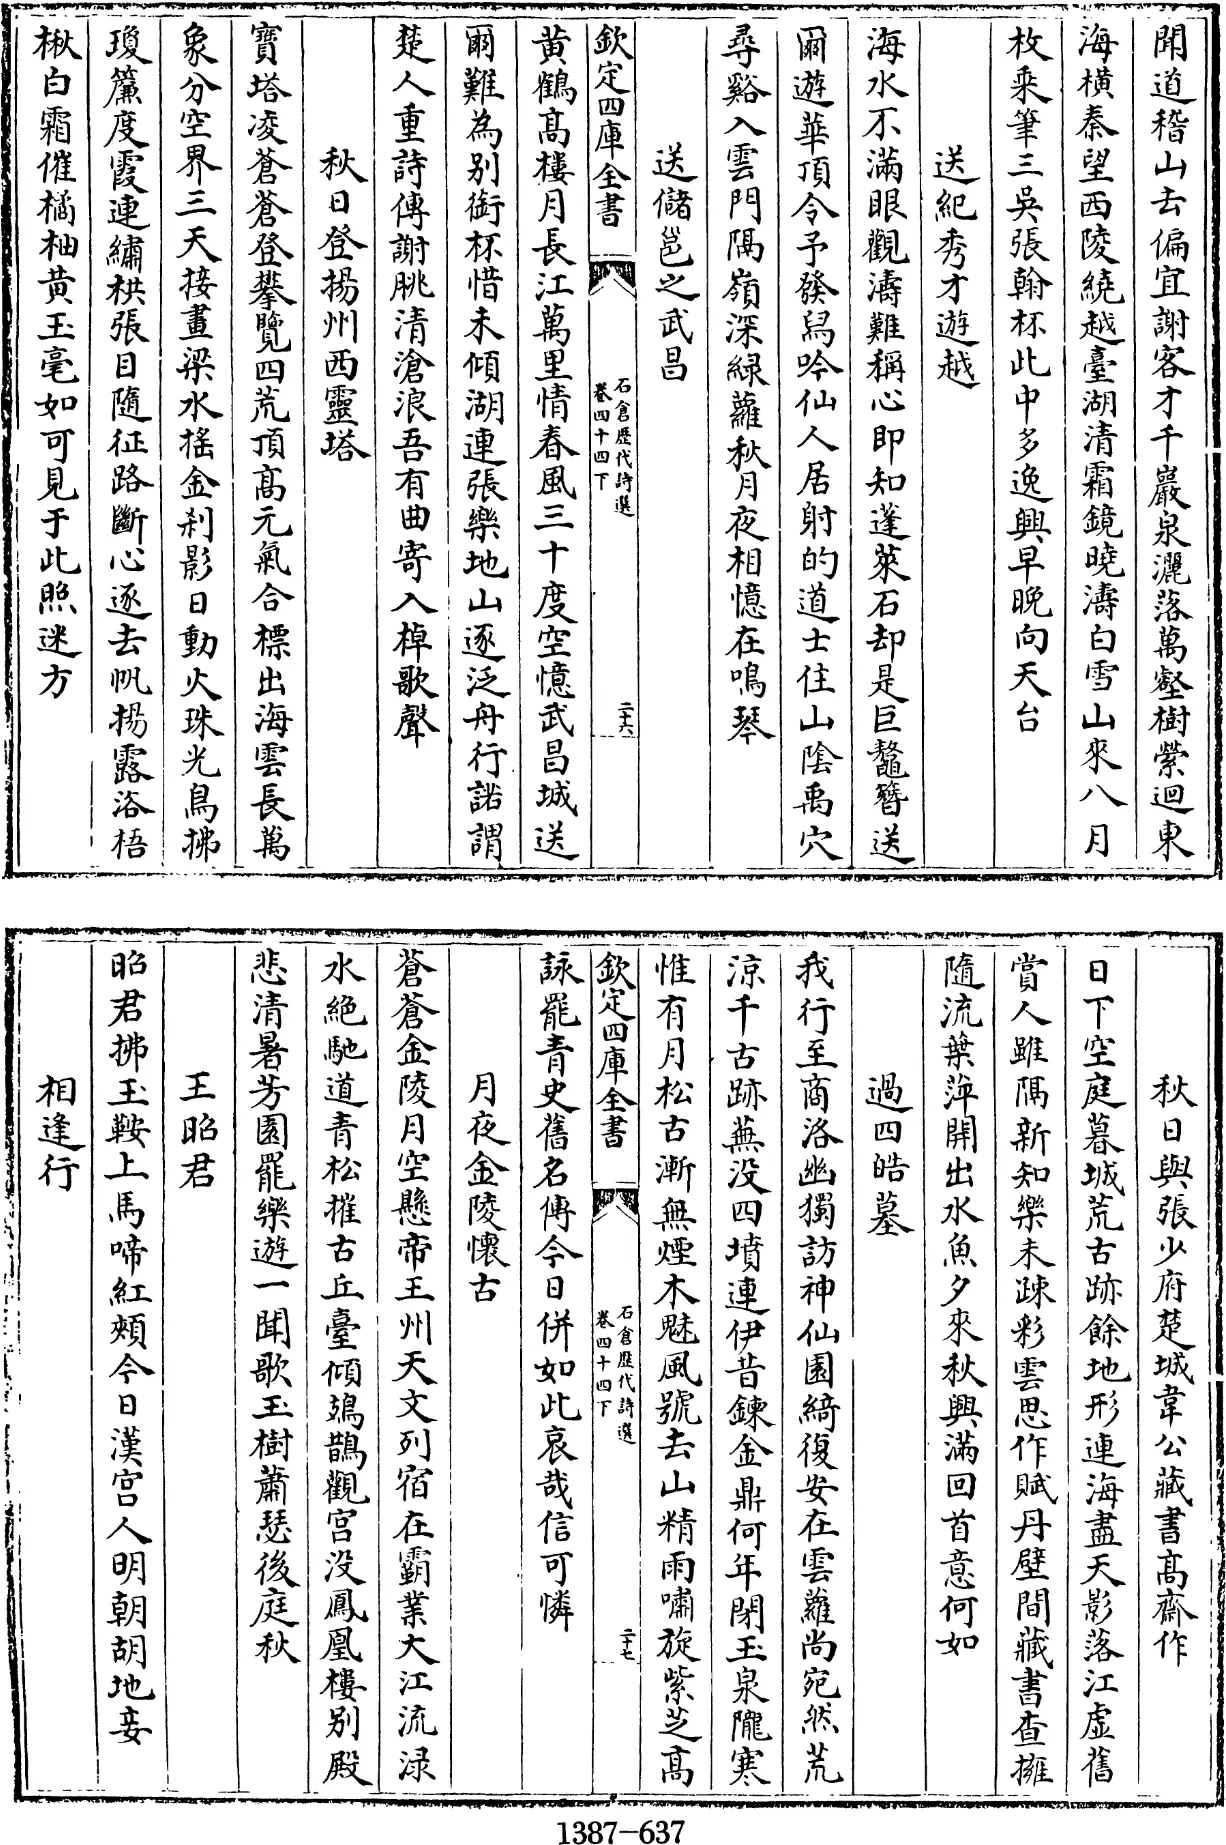 聞道稽山去偏宜謝客才千巖泉灑落萬壑樹縈迴東
海橫秦望西陵繞越臺湖清霜鏡曉濤白雪山來八月
枚乘筆三吳張翰杯此中多逸興早晚向天台
送紀秀才遊越
海水不滿眼觀濤難稱心即知蓬萊石却是巨鼇簪送
爾遊華頂令予發舄吟仙人居射的道士住山陰禹穴
尋谿入雲門隔嶺深綠蘿秋月夜相憶在鳴琴
送儲邕之武昌
欽定四庫全書
石倉歷代詩選
卷四十四下
二十六
黃鶴高樓月長江萬里情春風三十度空憶武昌城送
爾難為別銜杯惜未傾湖連張樂地山逐泛舟行諾謂
楚人重詩傳謝朓清滄浪吾有曲寄入棹歌聲
秋日登揚州西靈塔
寶塔凌蒼蒼登攀覽四荒頂高元氣合標出海雲長萬
象分空界三天接畫梁水搖金刹影日動火珠光鳥拂
瓊簾度霞連繡栱張目隨征路斷心逐去帆揚露浴梧
楸白霜催橘柚黃玉毫如可見于此照迷方
秋日與張少府楚城韋公藏書高齋作
日下空庭暮城荒古跡餘地形連海盡天影落江虛舊
賞人雖隔新知樂未疎彩雲思作賦丹壁間藏書查擁
隨流葉萍開出水魚夕來秋興滿回首意何如
過四皓墓
我行至商洛幽獨訪神仙園綺復安在雲蘿尚宛然荒
涼千古跡蕪没四墳連伊昔鍊金鼎何年閉玉泉隴寒
惟有月松古漸無煙木魅風號去山精雨嘯旋紫芝高
欽定四庫全書
石倉歷代詩選
卷四十四下
二十七
詠罷青史舊名傳今日併如此哀哉信可憐
月夜金陵懷古
蒼蒼金陵月空懸帝王州天文列宿在霸業大江流淥
水絶馳道青松摧古丘臺傾鳷鵲觀宮没鳳凰樓別殿
悲清暑芳園罷樂遊一聞歌玉樹蕭瑟後庭秋
王昭君
昭君拂玉鞍上馬啼紅頰今日漢宮人明朝胡地妾
相逢行
1387-637